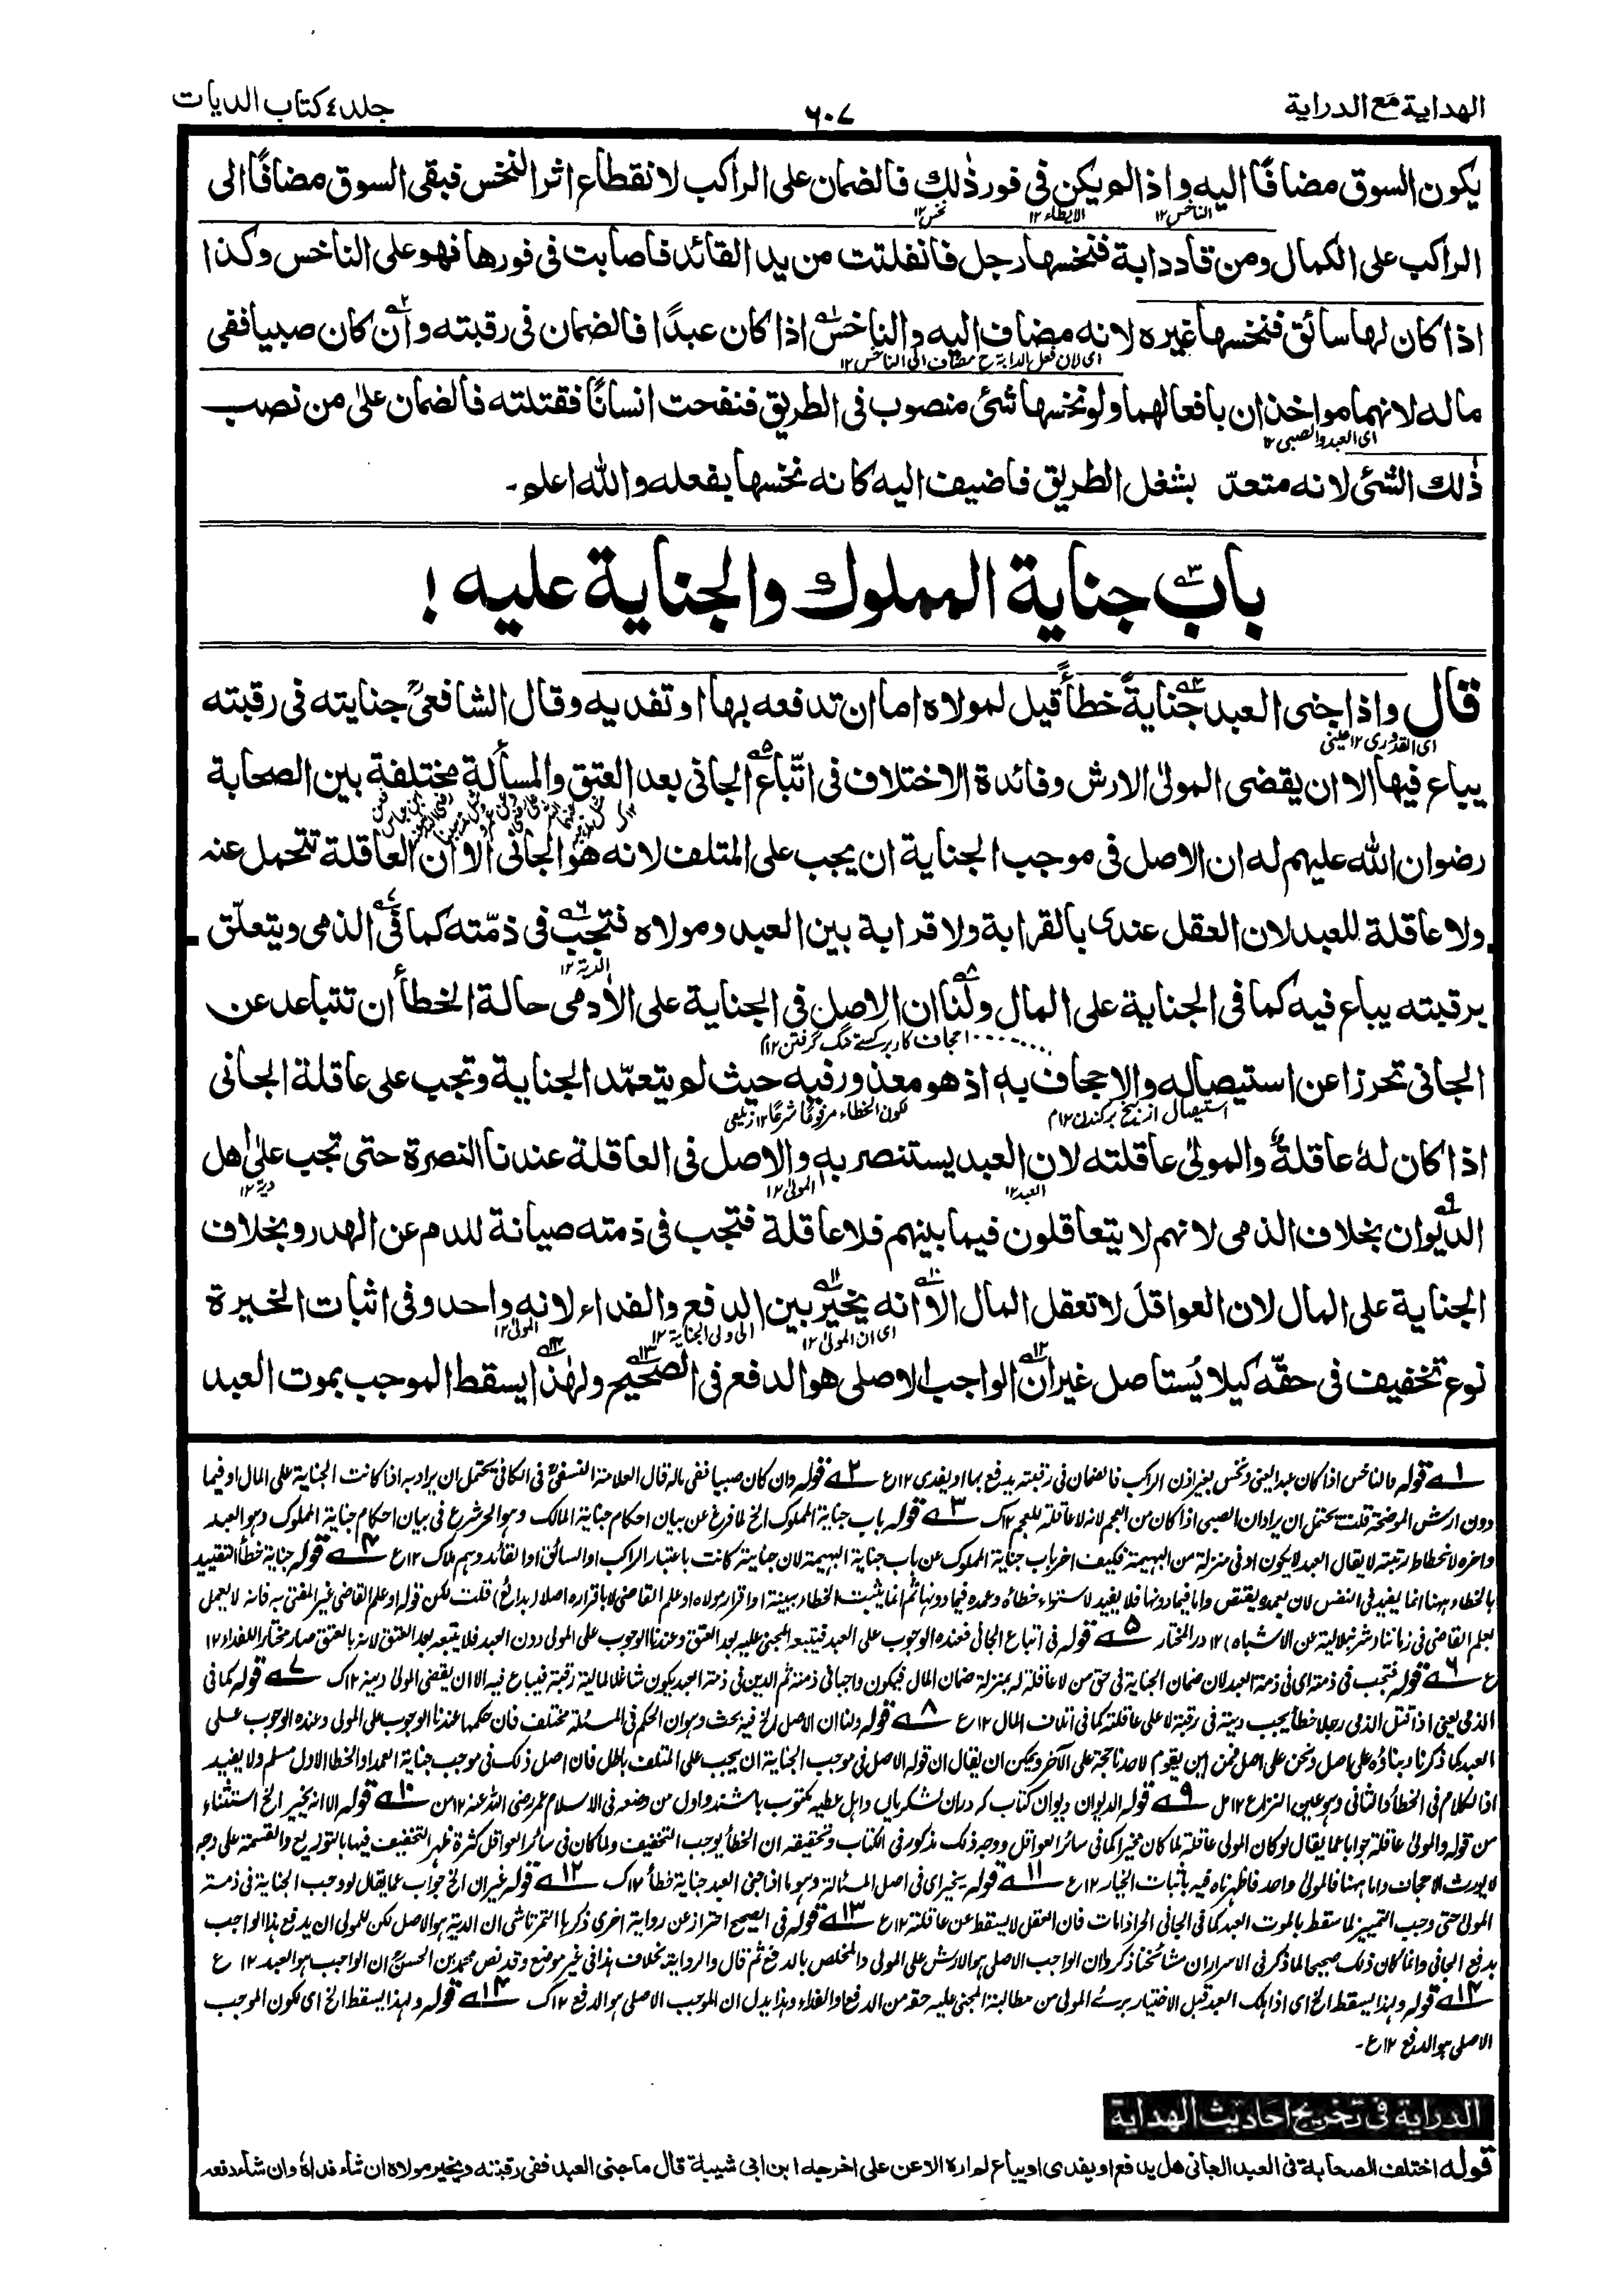 الهداية مع الدراية
٦٠٧
جلد ٤ كتاب الديات
يكون السوق مضافًا اليه واذا لم يكن فى فور ذٰلك فالضمان على الراكب لانقطاع اثر النخس فبقى السوق مضافًا الى
الناخس ١٢ الايطاء ١٢ نخس ١٢
الراكب على الكمال ومن قاد دابة فنخسها رجل فانفلتت من يد القائد فاصابت فى فورها فهو على الناخس وكذا
اذا كان لها سائق فنخسها غيره لانه مضاف اليه والناخس اذا كان عبدًا فالضمان فى رقبته وان كان صبيا ففى
اى لان فعل الدابة ح مضاف الى الناخس ١٢
ماله لانهما مواخذان بافعالهما ولو نخسها شئ منصوب فى الطريق فنفحت انسانًا فقتلته فالضمان علىٰ من نصب
اى العبد والصبى ١٢
ذٰلك الشئ لانه متعدّ بشغل الطريق فاضيف اليه كانه نخسها بفعله والله اعلم۔
باب جناية المملوك والجناية عليه !
قال واذا جنى العبد جنايةً خطأً قيل لمولاه اما ان تدفعه بها او تفديه وقال الشافعىؒ جنايته فى رقبته
اى القدورى ١٢ عينى
يباع فيها الا ان يقضى المولىٰ الارش وفائدة الاختلاف فى اتّباع الجانى بعد العتق والمسألة مختلفة بين الصحابة
رضوان الله عليهم له ان الاصل فى موجب الجناية ان يجب على المتلف لانه هو الجانى الا ان العاقلة تتحمل عنه
ولا عاقلة للعبد لان العقل عندى بالقرابة ولا قرابة بين العبد ومولاه فتجب فى ذمّته كما فى الذمى ويتعلّق
الدية ١٢
برقبته يباع فيه كما فى الجناية على المال ولنا ان الاصل فى الجناية على الاٰدمى حالة الخطأ ان تتباعد عن
اجحاف كار بر كسے تنگ گرفتن ١٢م
الجانى تحرزا عن استيصاله والاجحاف به اذ هو معذور فيه حيث لم يتعمّد الجناية وتجب على عاقلة الجانى
استيصال از بيخ بركندن ١٢م لكون الخطاء مرفوعًا شرعًا ١٢ زيلعى
اذا كان له عاقلة والمولىٰ عاقلته لان العبد يستنصر به والاصل فى العاقلة عندنا النصرة حتى تجب علىٰ اهل
العبد ١٢ المولىٰ ١٢ دية ١٢
الديوان بخلاف الذمى لانهم لا يتعاقلون فيما بينهم فلا عاقلة فتجب فى ذمته صيانة للدم عن الهدر وبخلاف
الجناية على المال لان العواقل لا تعقل المال الا انه يخير بين الدفع والفداء لانه واحد وفى اثبات الخيرة
اى ان المولىٰ ١٢ الى ولى الجناية ١٢ المولىٰ ١٢
نوع تخفيف فى حقّه كيلا يُستاصل غير ان الواجب الاصلى هو الدفع فى الصحيح ولهٰذا يسقط الموجب بموت العبد
١ قوله والناخس اذا كان عبدا يعنى ونخس بغير اذن الراكب فالضمان فى رقبته يدفع بها او يفدى ١٢ع ٢ قوله وان كان صبيا ففى ماله قال العلامة النسفىؒ فى الكافى يحتمل ان يراد به اذا كانت الجناية على المال او فيما
دون ارش الموضحة قلت يحتمل ان يراد ان الصبى اذا كان من العجم لانه لا عاقلة للعجم ١٢ك ٣ قوله باب جناية المملوك الخ لما فرغ عن بيان احكام جناية المالك وهو الحر شرع فى بيان احكام جناية المملوك وهو العبد
واخره لانحطاط رتبته لا يقال العبد لا يكون ادنى منزلة من البهيمة فكيف اخر باب جناية المملوك عن باب جناية البهيمة لان جنايته كانت باعتبار الراكب او السائق او القائد وهم ملاك ١٢ع ٤ قوله جناية خطأ التقييد
بالخطاء ههنا انما يفيد فى النفس لان بعمده يقتص واما فيما دونها فلا يفيد لاستواء خطأه وعمده فيما دونها ثم انما يثبت الخطاء ببينة او اقرار مولاه او علم القاضى لا باقراره اصلا (بدائع) قلت لكن قوله او علم القاضى غير المفتى به فانه لا يعمل
بعلم القاضى فى زماننا (شرنبلالية عن الاشباه) ١٢ در المختار ٥ قوله فى اتباع الجانى فعنده الوجوب على العبد فيتبعه المجنى عليه بعد العتق وعندنا الوجوب على المولى دون العبد فلا يتبعه بعد العتق لانه بالعتق صار مختارا للفداء ١٢
ع ٦ قوله فتجب فى ذمته اى فى ذمة العبد لان ضمان الجناية فى حق من لا عاقلة له بمنزلة ضمان المال فيكون واجبا فى ذمته ثم الدين فى ذمة العبد يكون شاغلا لمالية رقبته فيباع فيه الا ان يقضى المولى دينه ١٢ك ٧ قوله كما فى
الذمى يعنى اذا قتل الذمى رجلا خطأ يجب دية فى رقبته لا على عاقلته كما فى اتلاف المال ١٢ع ٨ قوله ولنا ان الاصل الخ فيه بحث وهو ان الحكم فى المسئلة مختلف فان حكمها عندنا الوجوب على المولى وعنده الوجوب على
العبد كما ذكرنا وبناؤه على اصل ونحن على اصل فمن اين يقوم لاحدنا حجة على الآخر ويمكن ان يقال ان قوله الاصل فى موجب الجناية ان يجب على المتلف باطل فان اصل ذلك فى موجب جناية العمد او الخطا الاول مسلم ولا يفيد
اذ الكلام فى الخطأ والثانى وهو عين النزاع ١٢ مل ٩ قوله الديوان ديوان كتاب كه دران لشكريان واهل عطيه مكتوب باشند واول من وضعه فى الاسلام عمر رضى الله عنه ١٢من ١٠ قوله الا انه يخير الخ استثناء
من قوله والمولىٰ عاقلته جوابا عما يقال لو كان المولى عاقلة لما كان مخيرا كما فى سائر العواقل ووجه ذلك مذكور فى الكتاب وتحقيقه ان الخطأ يوجب التخفيف ولما كان فى سائر العواقل كثرة ظهر التخفيف فيها بالتوزيع والقسمة على وجه
لا يورث الاجحاف واما ههنا فالمولى واحد فاظهرناه فيه باثبات الخيار ١٢ع ١١ قوله يخير اى فى اصل المسئالة وهو ما اذا جنى العبد جناية خطأ ١٢ك ١٢ قوله غير ان الخ جواب عما يقال لو وجب الجناية فى ذمته
المولى حتى وجب التمييز لما سقط بالموت العبد كما فى الجانى الحر اذا مات فان العقل لا يسقط عن عاقلته ١٢ع ١٣ قوله فى الصحيح احتراز عن رواية اخرى ذكرها التمرتاشى ان الدية هو الاصل لكن للمولى ان يدفع هذا الواجب
بدفع الجانى وانما كان ذلك صحيحا لما ذكر فى الاسرار ان مشائخنا ذكروا ان الواجب الاصلى هو الارش على المولى والمخلص بالدفع ثم قال والرواية بخلاف هذا فى غير موضع وقد نص محمد بن الحسنؒ ان الواجب هو العبد ١٢ ع
١٤ قوله ولهذا يسقط الخ اى اذا هلك العبد قبل الاختيار برئ المولى من مطالبة المجنى عليه حقه من الدفع او الفداء وهذا يدل ان الموجب الاصلى هو الدفع ١٢ك ١٤ قوله ولهذا يسقط الخ اى لكون الموجب
الاصلى هو الدفع ١٢ع۔
الدراية فى تخريج احاديث الهداية
قوله اختلف الصحابة فى العبد الجانى هل يدفع او يفدى او يباع لم اره الا عن على اخرجه ابن ابى شيبة قال ما جنى العبد ففى رقبته ويخير مولاه ان شاء فداه وان شاء دفعه